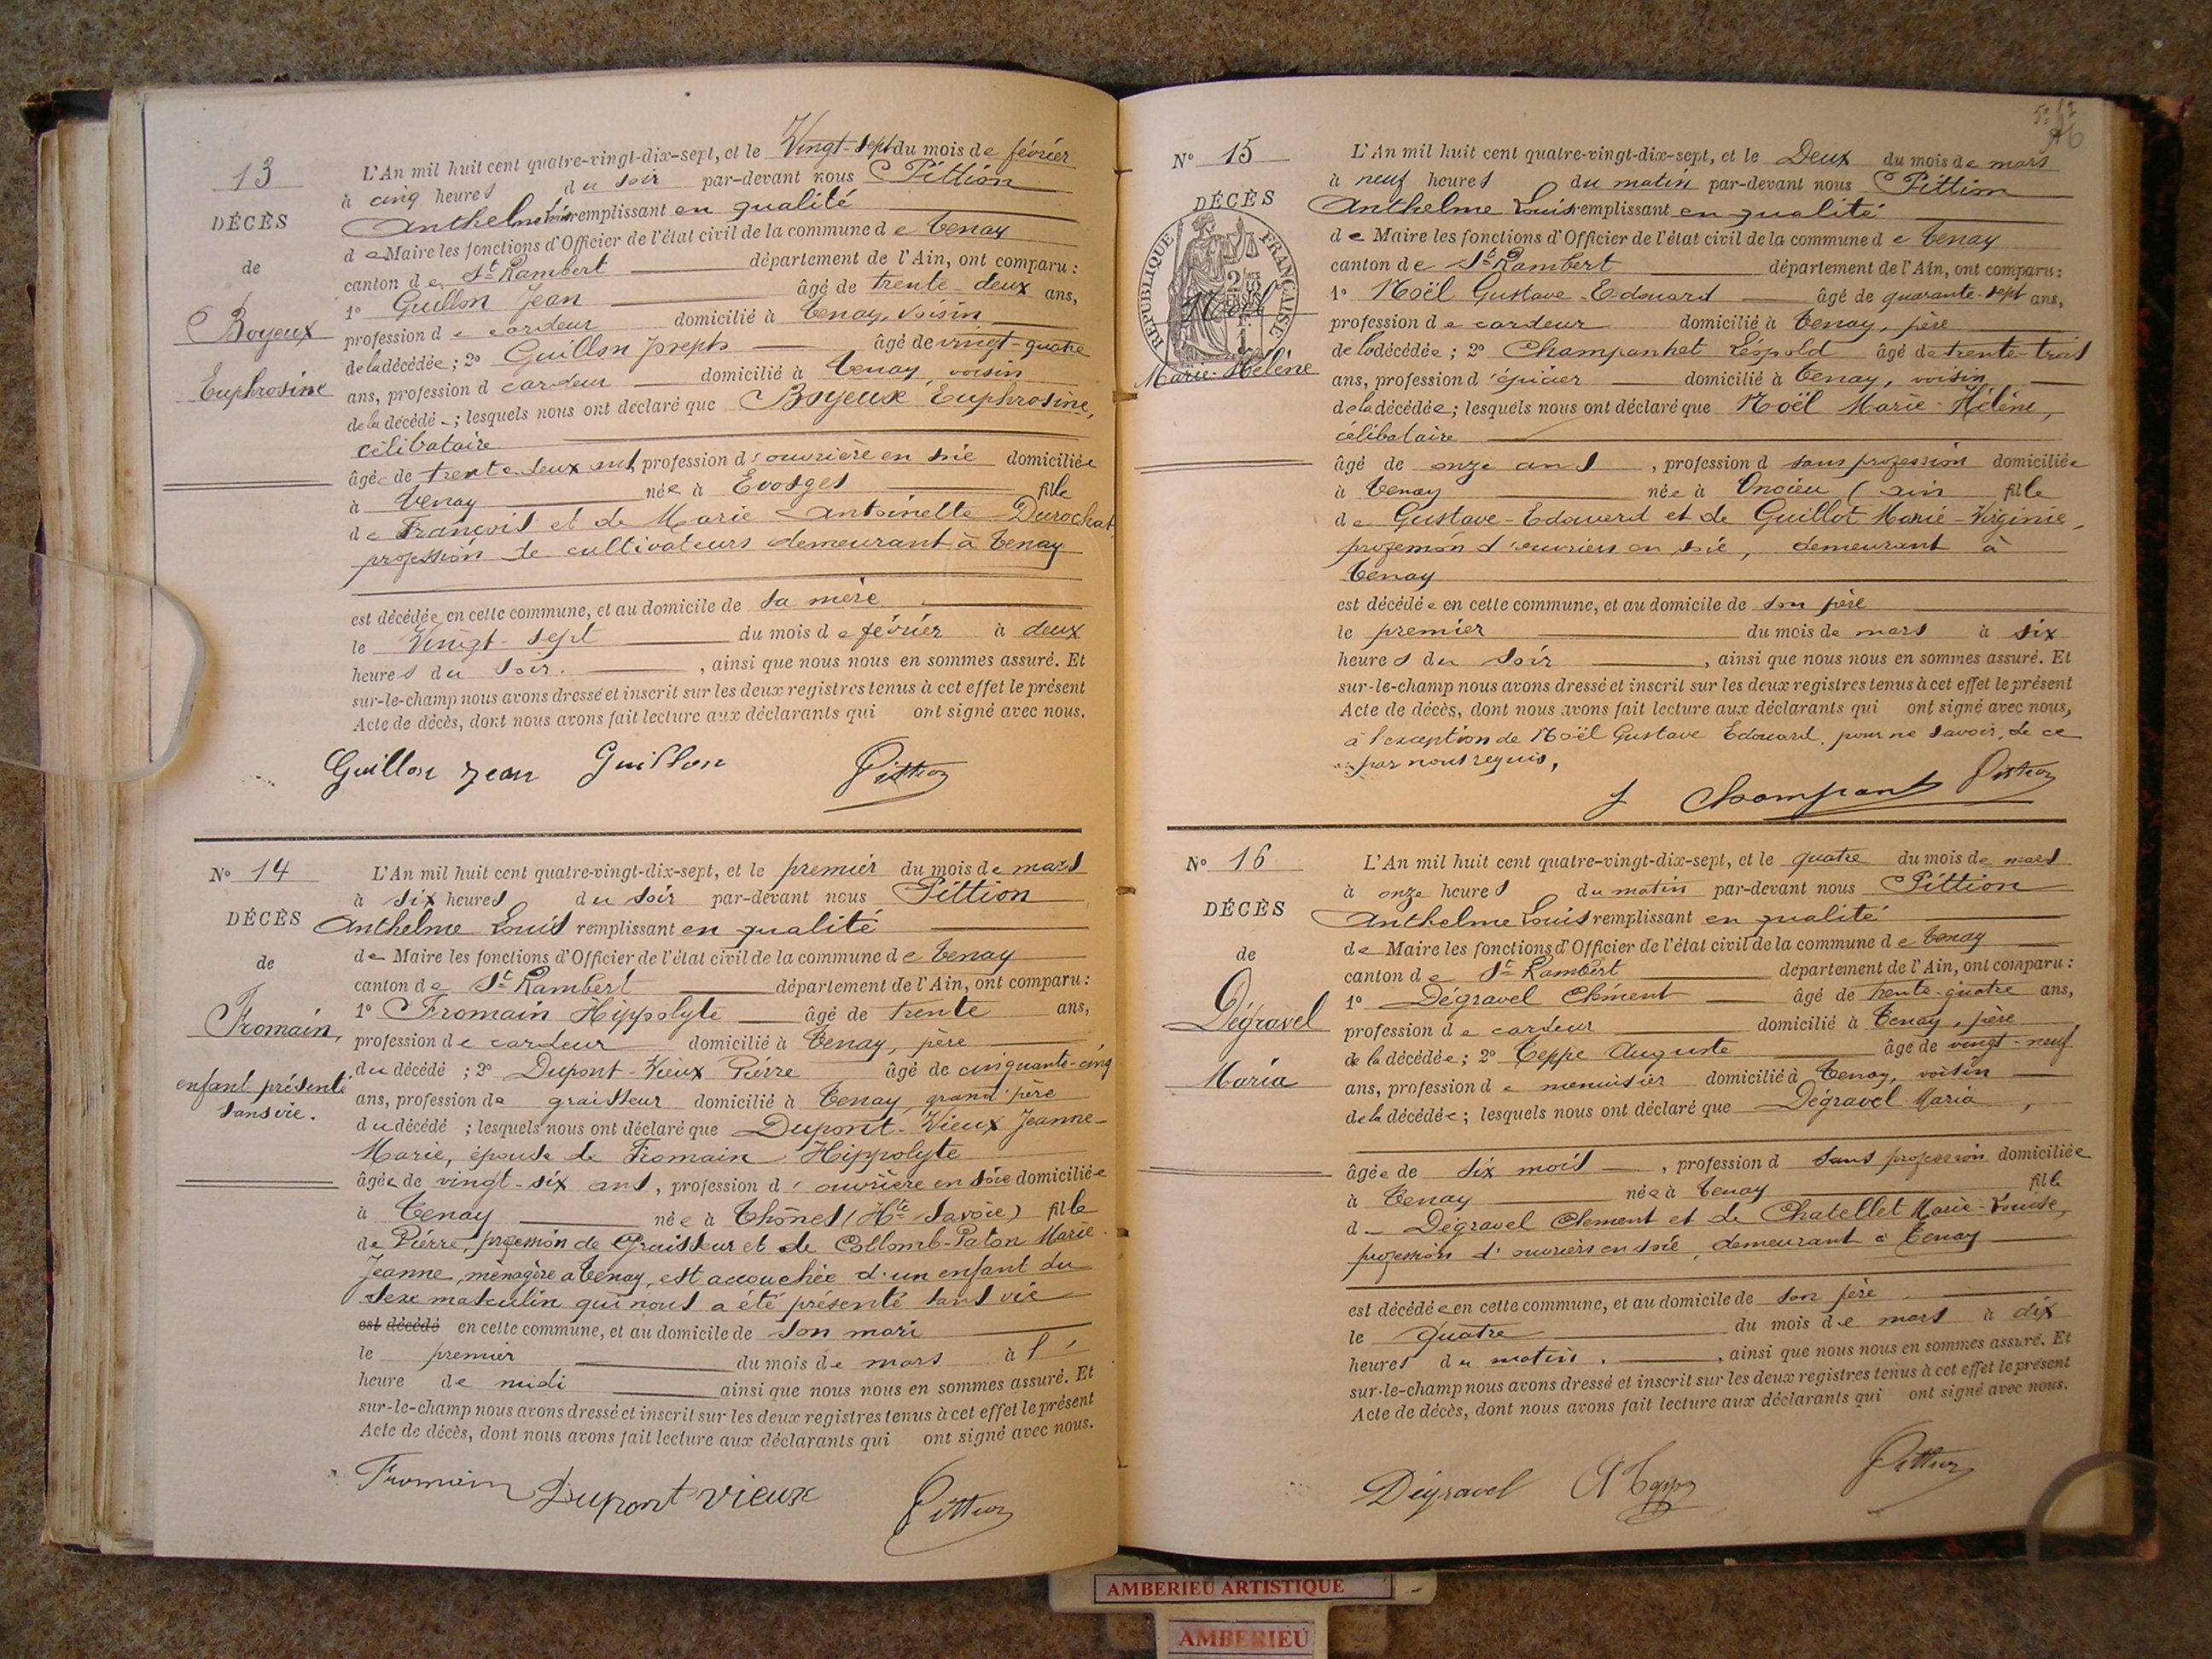 13
DÉCÈS
de
Boyeux
Euphrosine
L'An mil huit cent quatre-vingt-dix-sept, et le Vingt-sept du mois de février
à cinq heures du soir par-devant nous Pittion
Anthelme Louis remplissant en qualité
de Maire les fonctions d'Officier de l'état civil de la commune de Tenay
canton de St Rambert département de l'Ain, ont comparu :
1° Guillon Jean âgé de trente-deux ans,
profession de cardeur domicilié à Tenay, voisin
de la décédée ; 2° Guillon Joseph âgé de vingt-quatre
ans, profession d cardeur domicilié à Tenay, voisin
de la décédé ; lesquels nous ont déclaré que Boyeux Euphrosine,
célibataire
âgée de trente deux ans, profession d'ouvrière en soie domiciliée
à Tenay née à Evosges fille
de François et de Marie Antoinette Durochat
profession de cultivateurs demeurant à Tenay
est décédée en cette commune, et au domicile de sa mère
le Vingt-sept du mois de février à deux
heures du soir. , ainsi que nous nous en sommes assuré. Et
sur-le-champ nous avons dressé et inscrit sur les deux registres tenus à cet effet le présent
Acte de décès, dont nous avons fait lecture aux déclarants qui ont signé avec nous.
Guillon Jean Guillon Pittion
N° 14
DÉCÈS
de
Fromain,
enfant présenté
sans vie.
L'An mil huit cent quatre-vingt-dix-sept, et le premier du mois de mars
à six heures du soir par-devant nous Pittion
Anthelme Louis remplissant en qualité
de Maire les fonctions d'Officier de l'état civil de la commune de Tenay
canton de St Rambert département de l'Ain, ont comparu :
1° Fromain Hippolyte âgé de trente ans,
profession de cardeur domicilié à Tenay, père
du décédé ; 2° Dupont-Vieux Pierre âgé de cinquante-cinq
ans, profession de graisseur domicilié à Tenay, grand'père
du décédé ; lesquels nous ont déclaré que Dupont-Vieux Jeanne-
Marie, épouse de Fromain Hippolyte
âgée de vingt-six ans, profession d'ouvrière en soie domiciliée
à Tenay née à Thônes (Hte Savoie) fille
de Pierre, profession de Graisseur et de Collomb-Paton Marie
Jeanne, ménagère à Tenay, est accouchée d'un enfant du
sexe masculin qui nous a été présenté sans vie
est décédé en cette commune, et au domicile de son mari
le premier du mois de mars à l'
heure de midi ainsi que nous nous en sommes assuré. Et
sur-le-champ nous avons dressé et inscrit sur les deux registres tenus à cet effet le présent
Acte de décès, dont nous avons fait lecture aux déclarants qui ont signé avec nous.
Fromain Dupont vieux Pittion
N° 15
DÉCÈS
RÉPUBLIQUE FRANÇAISE
Noël
Marie-Hélène
L'An mil huit cent quatre-vingt-dix-sept, et le Deux du mois de mars
à neuf heures du matin par-devant nous Pittion
Anthelme Louis remplissant en qualité
de Maire les fonctions d'Officier de l'état civil de la commune de Tenay
canton de St Rambert département de l'Ain, ont comparu :
1° Noël Gustave-Edouard âgé de quarante-sept ans,
profession de cardeur domicilié à Tenay, père
de la décédée ; 2° Champanhet Léopold âgé de trente-trois
ans, profession d'épicier domicilié à Tenay, voisin
de la décédée ; lesquels nous ont déclaré que Noël Marie-Hélène,
célibataire
âgé de onze ans , profession d sans profession domiciliée
à Tenay née à Oncieu (Ain fille
de Gustave-Edouard et de Guillot Marie-Virginie,
profession d'ouvriers en soie, demeurant à
Tenay
est décédée en cette commune, et au domicile de son père
le premier du mois de mars à six
heures du soir , ainsi que nous nous en sommes assuré. Et
sur-le-champ nous avons dressé et inscrit sur les deux registres tenus à cet effet le présent
Acte de décès, dont nous avons fait lecture aux déclarants qui ont signé avec nous,
à l'exception de Noël Gustave Edouard, pour ne savoir, de ce
par nous requis,
Pittion
N° 16
DÉCÈS
de
Dégravel
Maria
L'An mil huit cent quatre-vingt-dix-sept, et le quatre du mois de mars
à onze heures du matin par-devant nous Pittion
Anthelme Louis remplissant en qualité
de Maire les fonctions d'Officier de l'état civil de la commune de Tenay
canton de St Rambert département de l'Ain, ont comparu :
1° Dégravel Clément âgé de trente-quatre ans,
profession de cardeur domicilié à Tenay, père
de la décédée ; 2° Teppe Auguste âgé de vingt-neuf
ans, profession de menuisier domicilié à Tenay, voisin
de la décédée ; lesquels nous ont déclaré que Dégravel Maria,
âgée de six mois , profession d sans profession domiciliée
à Tenay née à Tenay fille
d Dégravel Clément et de Chatellet Marie-Louise,
profession d'ouvriers en soie, demeurant à Tenay
est décédée en cette commune, et au domicile de son père
le quatre du mois de mars à dix
heures du matin. , ainsi que nous nous en sommes assuré. Et
sur-le-champ nous avons dressé et inscrit sur les deux registres tenus à cet effet le présent
Acte de décès, dont nous avons fait lecture aux déclarants qui ont signé avec nous.
Dégravel A Teppe Pittion
AMBERIEU ARTISTIQUE
AMBERIEU